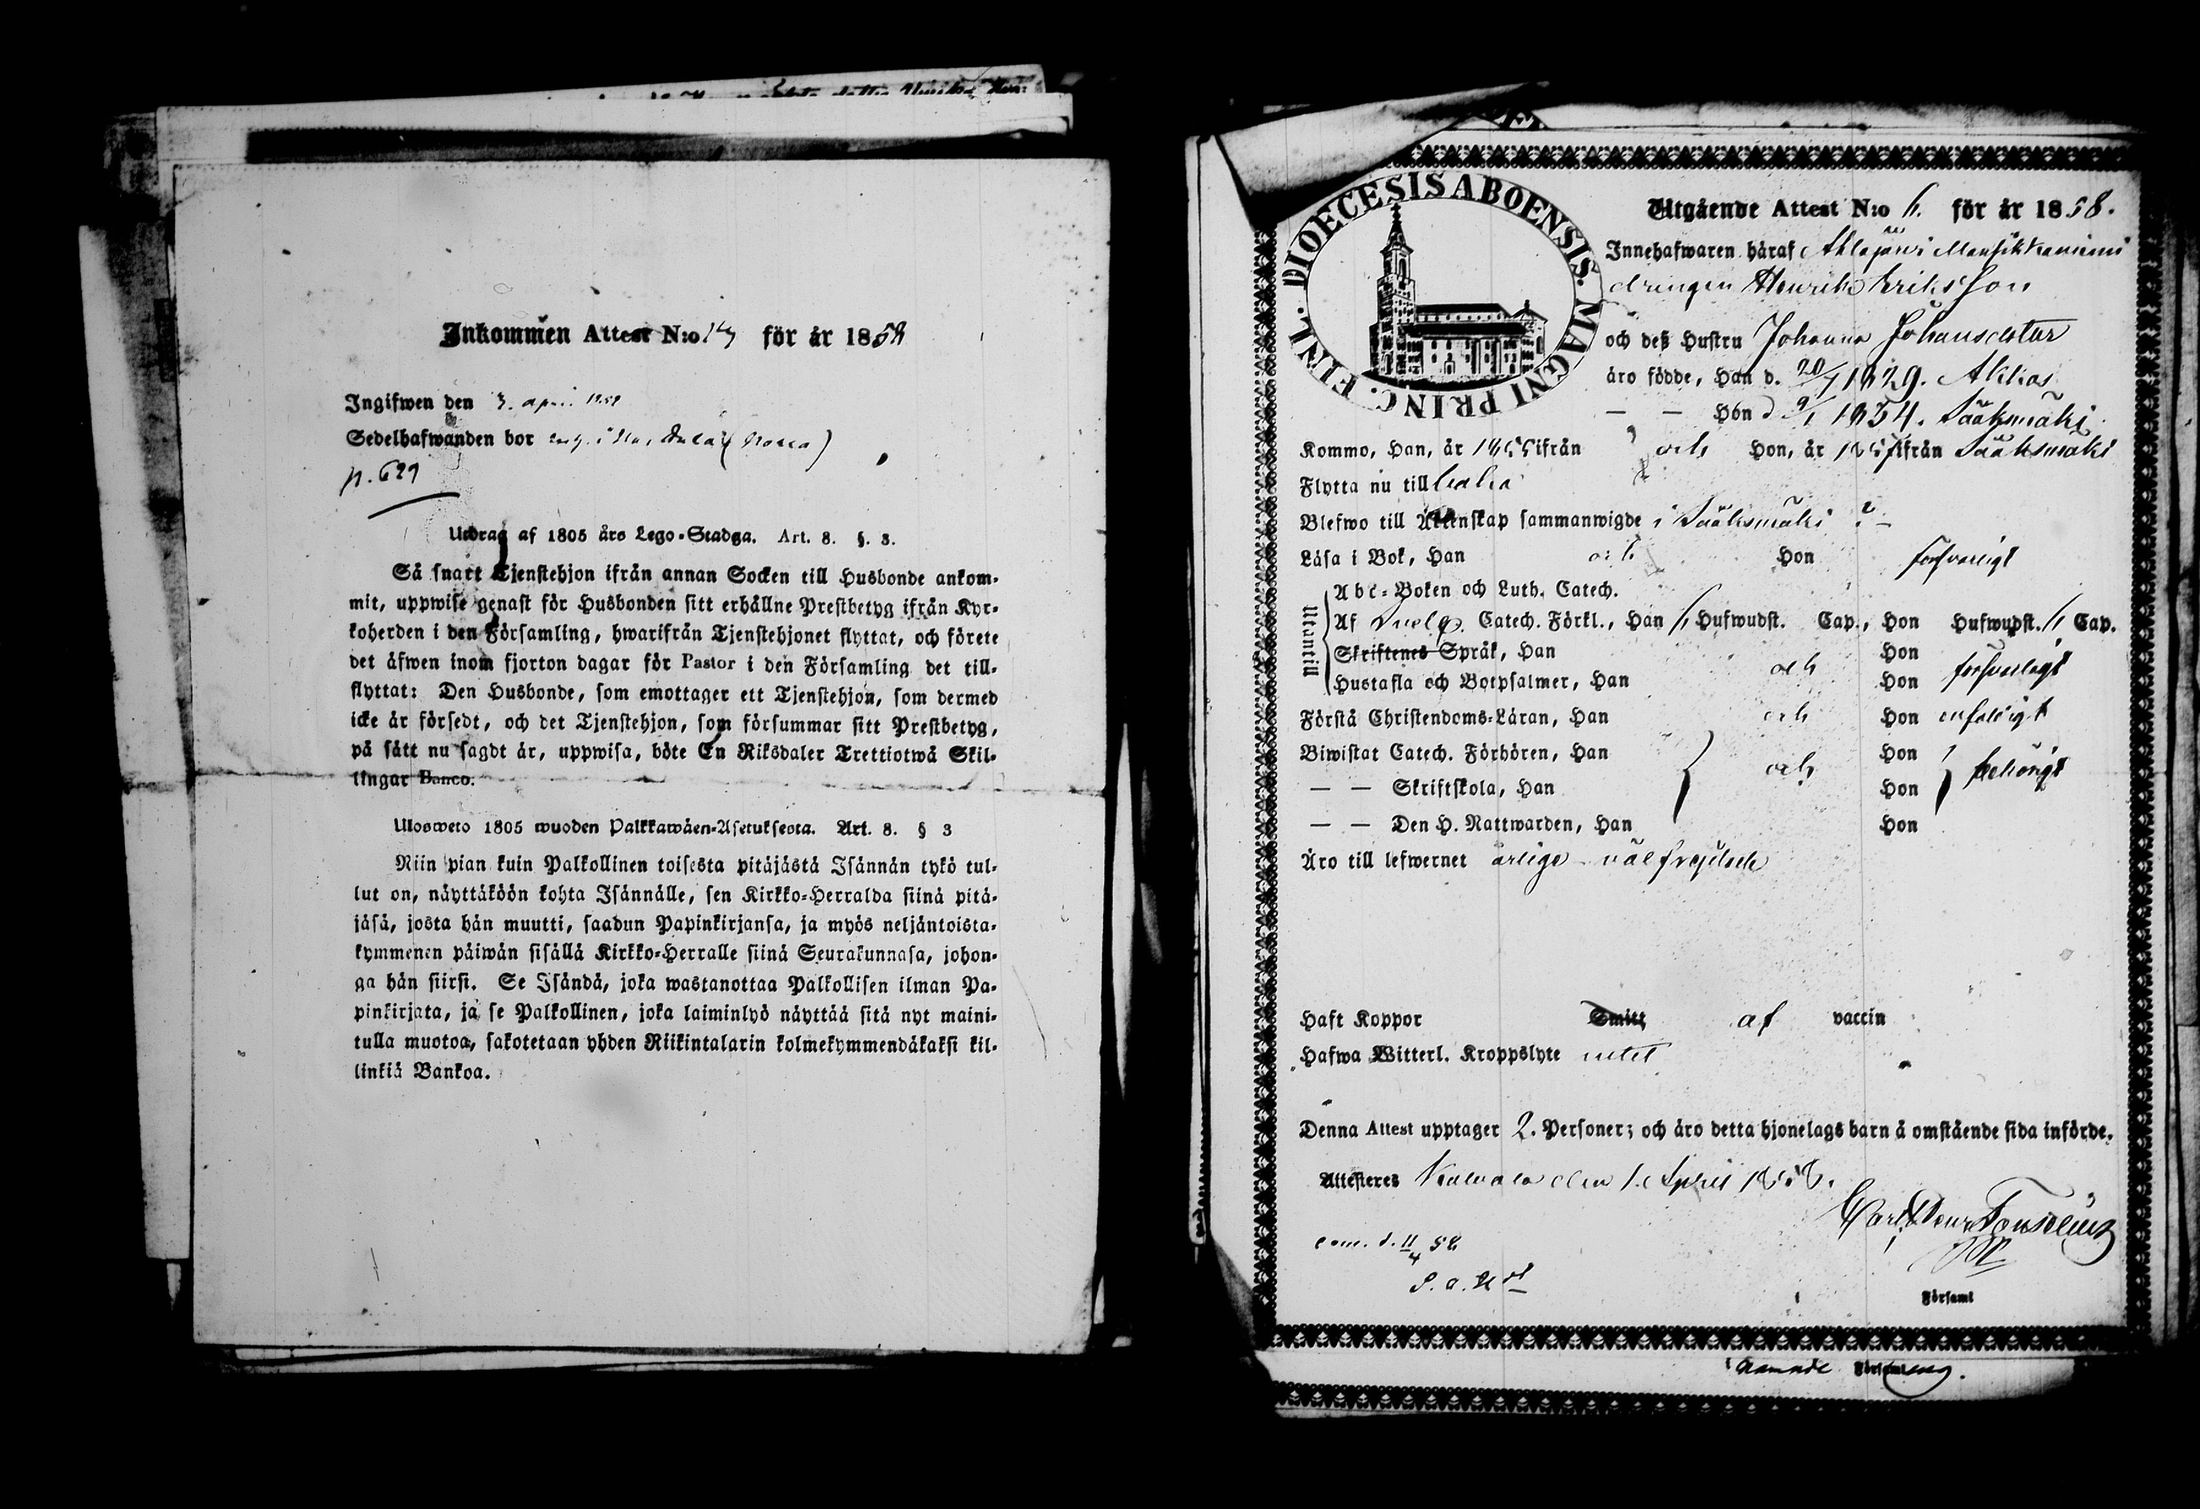 Inkommen Attest N:o 14 för år 1858
Ingifwen den 3. april 1858
Sedelhafwanden bor
p. 629
Utdrag af 1805 års Lego-Stadga. Art. 8. §. 3.
Så snart Tjenstehjon ifrån annan Socken till Husbonde ankom-
mit, uppwise genast för Husbonden sitt erhållne Prestbetyg ifrån Kyr-
koherden i den Församling, hwarifrån Tjenstehjonet flyttat, och förete
det äfwen inom fjorton dagar för Pastor i den Församling det till-
flyttat: Den Husbonde, som emottager ett Tjenstehjon, som dermed
icke är försedt, och det Tjenstehjon, som försummar sitt Prestbetyg,
på sätt nu sagdt är, uppwisa, böte En Riksdaler Trettiotwå Skil-
lingar Banco.
Ulosweto 1805 wuoden Palkkawäen-Asetuksesta. Art. 8. § 3
Niin pian kuin Palkollinen toisesta pitäjästä Isännän tykö tul-
lut on, näyttäköön kohta Isännälle, sen Kirkko-Herralda siinä pitä-
jäsä, josta hän muutti, saadun Papinkirjansa, ja myös neljäntoista-
kymmenen päiwän sisällä Kirkko-Herralle siinä Seurakunnasa, johon-
ga hän siirsi. Se Isändä, joka wastanottaa Palkollisen ilman Pa-
pinkirjata, ja se Palkollinen, joka laiminlyö näyttää sitä nyt maini-
tulla muotoa, sakotetaan yhden Riikintalarin kolmekymmendäkaksi kil-
linkiä Bankoa.
DIOECESIS ABOENSIS. MAGNI PRINC. FINL.
Utgående Attest N:o 6. för år 1858.
Innehafwaren häraf Ahlajärvi Mansikkaniemi
drengen Henrik Eriksson
och deß Hustru Johanna Johansdotter
äro födde, Han d. 20/7 1829. Akkas
— — Hon d 9/1 1834. Sääksmäki
Kommo, Han, år 1855 ifrån och Hon, år 1857 ifrån Sääksmäki
Flytta nu till
Blefwo till Äktenskap sammanwigde i Sääksmäki ?
Läsa i Bok, Han och Hon försvarligt
Utantill
Abc-Boken och Luth. Catech.
Af Svebg. Catech. Förkl., Han Hufwudst. Cap., Hon Hufwudst. Cap.
Skriftenes Språk, Han Hon
Hustafla och Botpsalmer, Han och Hon försvarligt
Förstå Christendoms-Läran, Han och Hon enfaldigt
Biwistat Catech. Förhören, Han Hon
— — Skriftskola, Han och Hon behörigt
— — Den H. Nattwarden, Han Hon
Äro till lefwernet ärlige välfrejdade
Haft Koppor Smitt af vaccin
Hafwa Witterl. Kroppslyte intet
Denna Attest upptager 2. Personer; och äro detta hjonelags barn å omstående sida införde.
Attesteres Kalvola den 1. April 1858.
Carl Henr Fonselius
com. d. 11/4 58
Församl
Församl